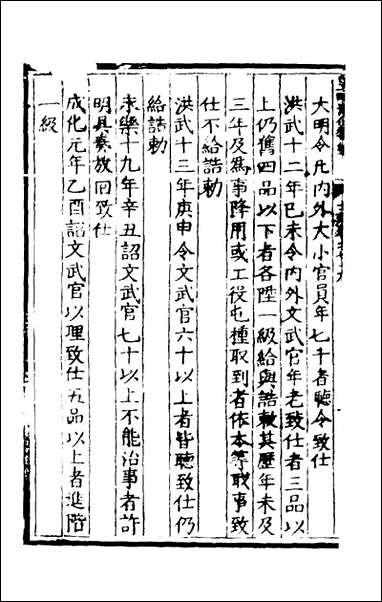 大明令凡内外大小官員年七十者聽令致仕
洪武十二年已未令内外文武官年老致仕者三品以
上仍舊四品以下者各陞一級給與誥敕其歷年未及
三年及爲事降用或工役屯種取到者依本等職事致
仕不給誥勅
洪武十三年庚申令文武官六十以上者皆聽致仕仍
給誥勅
永樂十九年辛丑詔文武官七十以上不能治事者許
明具奏放回致仕
成化元年乙酉詔文武官以理致仕五品以上者進階
一級